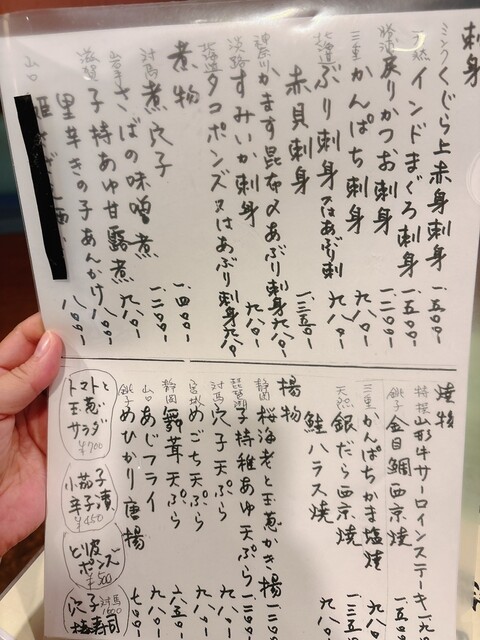 刺身
ミンク くじら上赤身刺身 一、五〇〇
天然 インドまぐろ刺身 一、五〇〇
戻りかつお刺身 一、二〇〇
三重 かんぱち刺身 九八〇
北海道 ぶり刺身又はあぶり刺 九八〇
赤貝刺身 一、三五〇
神奈川 かます昆布〆あぶり刺身 九八〇
淡路 すみいか刺身 九八〇
北海道 タコポンズ又はあぶり刺身 九八〇
煮物
対馬 煮穴子 一、四〇〇
さばの味噌煮 一、二〇〇
滋賀 子持あゆ甘露煮 九八〇
里芋きの子あんかけ 八〇〇
山口
焼物
特撰山形牛サーロインステーキ
銚子 金目鯛西京焼 一、五〇〇
三重 かんぱちかま塩焼 九八〇
天然 銀だら西京焼 一、三五〇
鮭ハラス焼 九八〇
揚物
静岡 桜海老と玉葱かき揚 一、二〇〇
琵琶湖 子持稚あゆ天ぷら 一、二〇〇
対馬 穴子天ぷら 九八〇
宮城 めごち天ぷら 九八〇
静岡 舞茸天ぷら 八五〇
山口 あじフライ 九八〇
銚子 めひかり唐揚 九八〇
トマトと
玉葱
サラダ
¥700
小茄子
辛子漬
¥450
とば
ポンズ
¥500
穴子 対馬
棒寿司